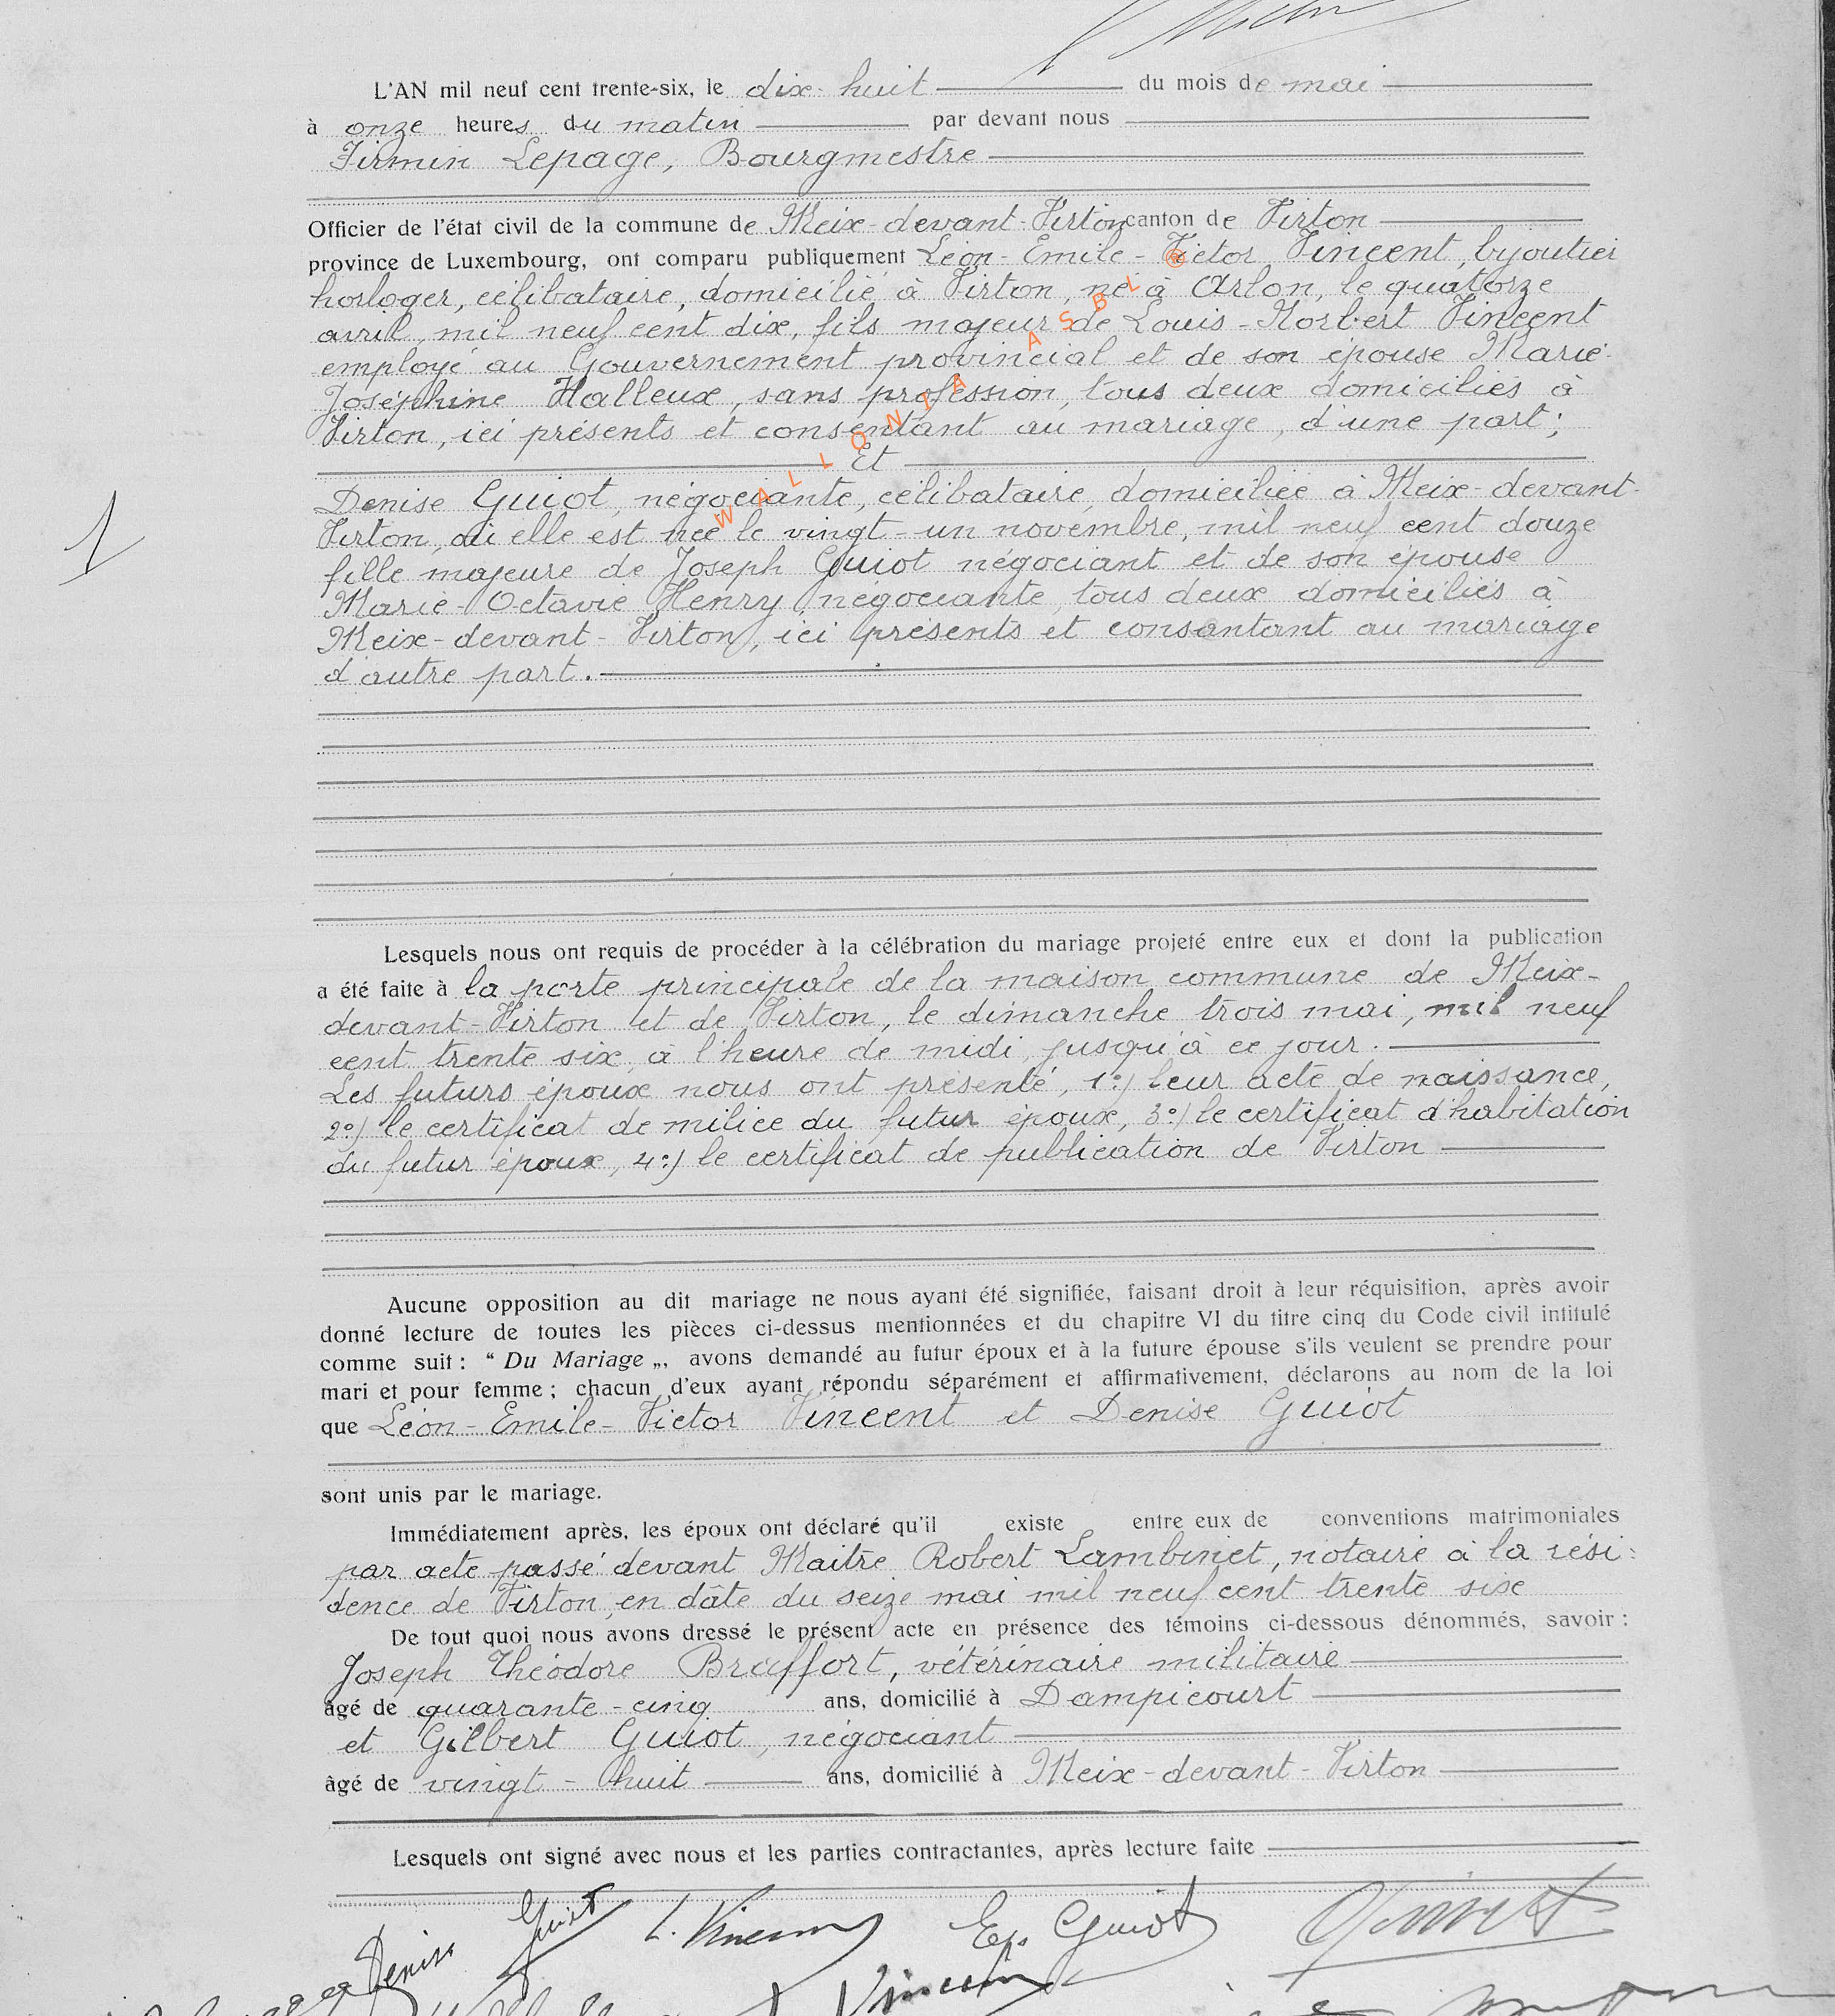 L'AN mil neuf cent trente-six, le dix-huit du mois de mai
à onze heures du matin par devant nous
Firmin Lepage, Bourgmestre
Officier de l'état civil de la commune de Meix-devant-Virton canton de Virton
province de Luxembourg, ont comparu publiquement Léon-Emile-Victor Vincent, bijoutier
horloger, célibataire, domicilié à Virton, né à Arlon, le quatorze
avril, mil neuf cent dix, fils majeur de Louis-Norbert Vincent
employé au Gouvernement provincial et de son épouse Marie-
Joséphine Halleux, sans profession, tous deux domiciliés à
Virton, ici présents et consentant au mariage, d'une part;
Et
Denise Guiot, négociante, célibataire, domiciliée à Meix-devant-
Virton, où elle est née le vingt-un novembre, mil neuf cent douze
fille majeure de Joseph Guiot négociant et de son épouse
Marie-Octavie Henry, négociante, tous deux domiciliés à
Meix-devant-Virton, ici présents et consentant au mariage
d'autre part.
1
WALLONIA ASBL ©
Lesquels nous ont requis de procéder à la célébration du mariage projeté entre eux et dont la publication
a été faite à la porte principale de la maison commune de Meix-
devant-Virton et de Virton, le dimanche trois mai, mil neuf
cent trente six, à l'heure de midi, jusqu'à ce jour.
Les futurs époux nous ont présenté, 1°) leur acte de naissance,
2°) le certificat de milice du futur époux, 3°) le certificat d'habitation
du futur époux, 4°) le certificat de publication de Virton
Aucune opposition au dit mariage ne nous ayant été signifiée, faisant droit à leur réquisition, après avoir
donné lecture de toutes les pièces ci-dessus mentionnées et du chapitre VI du titre cinq du Code civil intitulé
comme suit : “ Du Mariage „, avons demandé au futur époux et à la future épouse s'ils veulent se prendre pour
mari et pour femme ; chacun d'eux ayant répondu séparément et affirmativement, déclarons au nom de la loi
que Léon-Emile-Victor Vincent et Denise Guiot
sont unis par le mariage.
Immédiatement après, les époux ont déclaré qu'il existe entre eux de conventions matrimoniales
par acte passé devant Maître Robert Lambinet, notaire à la rési:
dence de Virton, en dâte du seize mai mil neuf cent trente six
De tout quoi nous avons dressé le présent acte en présence des témoins ci-dessous dénommés, savoir :
Joseph Théodore Braffort, vétérinaire militaire
âgé de quarante-cinq ans, domicilié à Dampicourt
et Gilbert Guiot, négociant
âgé de vingt-huit ans, domicilié à Meix-devant-Virton
Lesquels ont signé avec nous et les parties contractantes, après lecture faite
Denise Guiot L. Vincent Guiot
Vincent